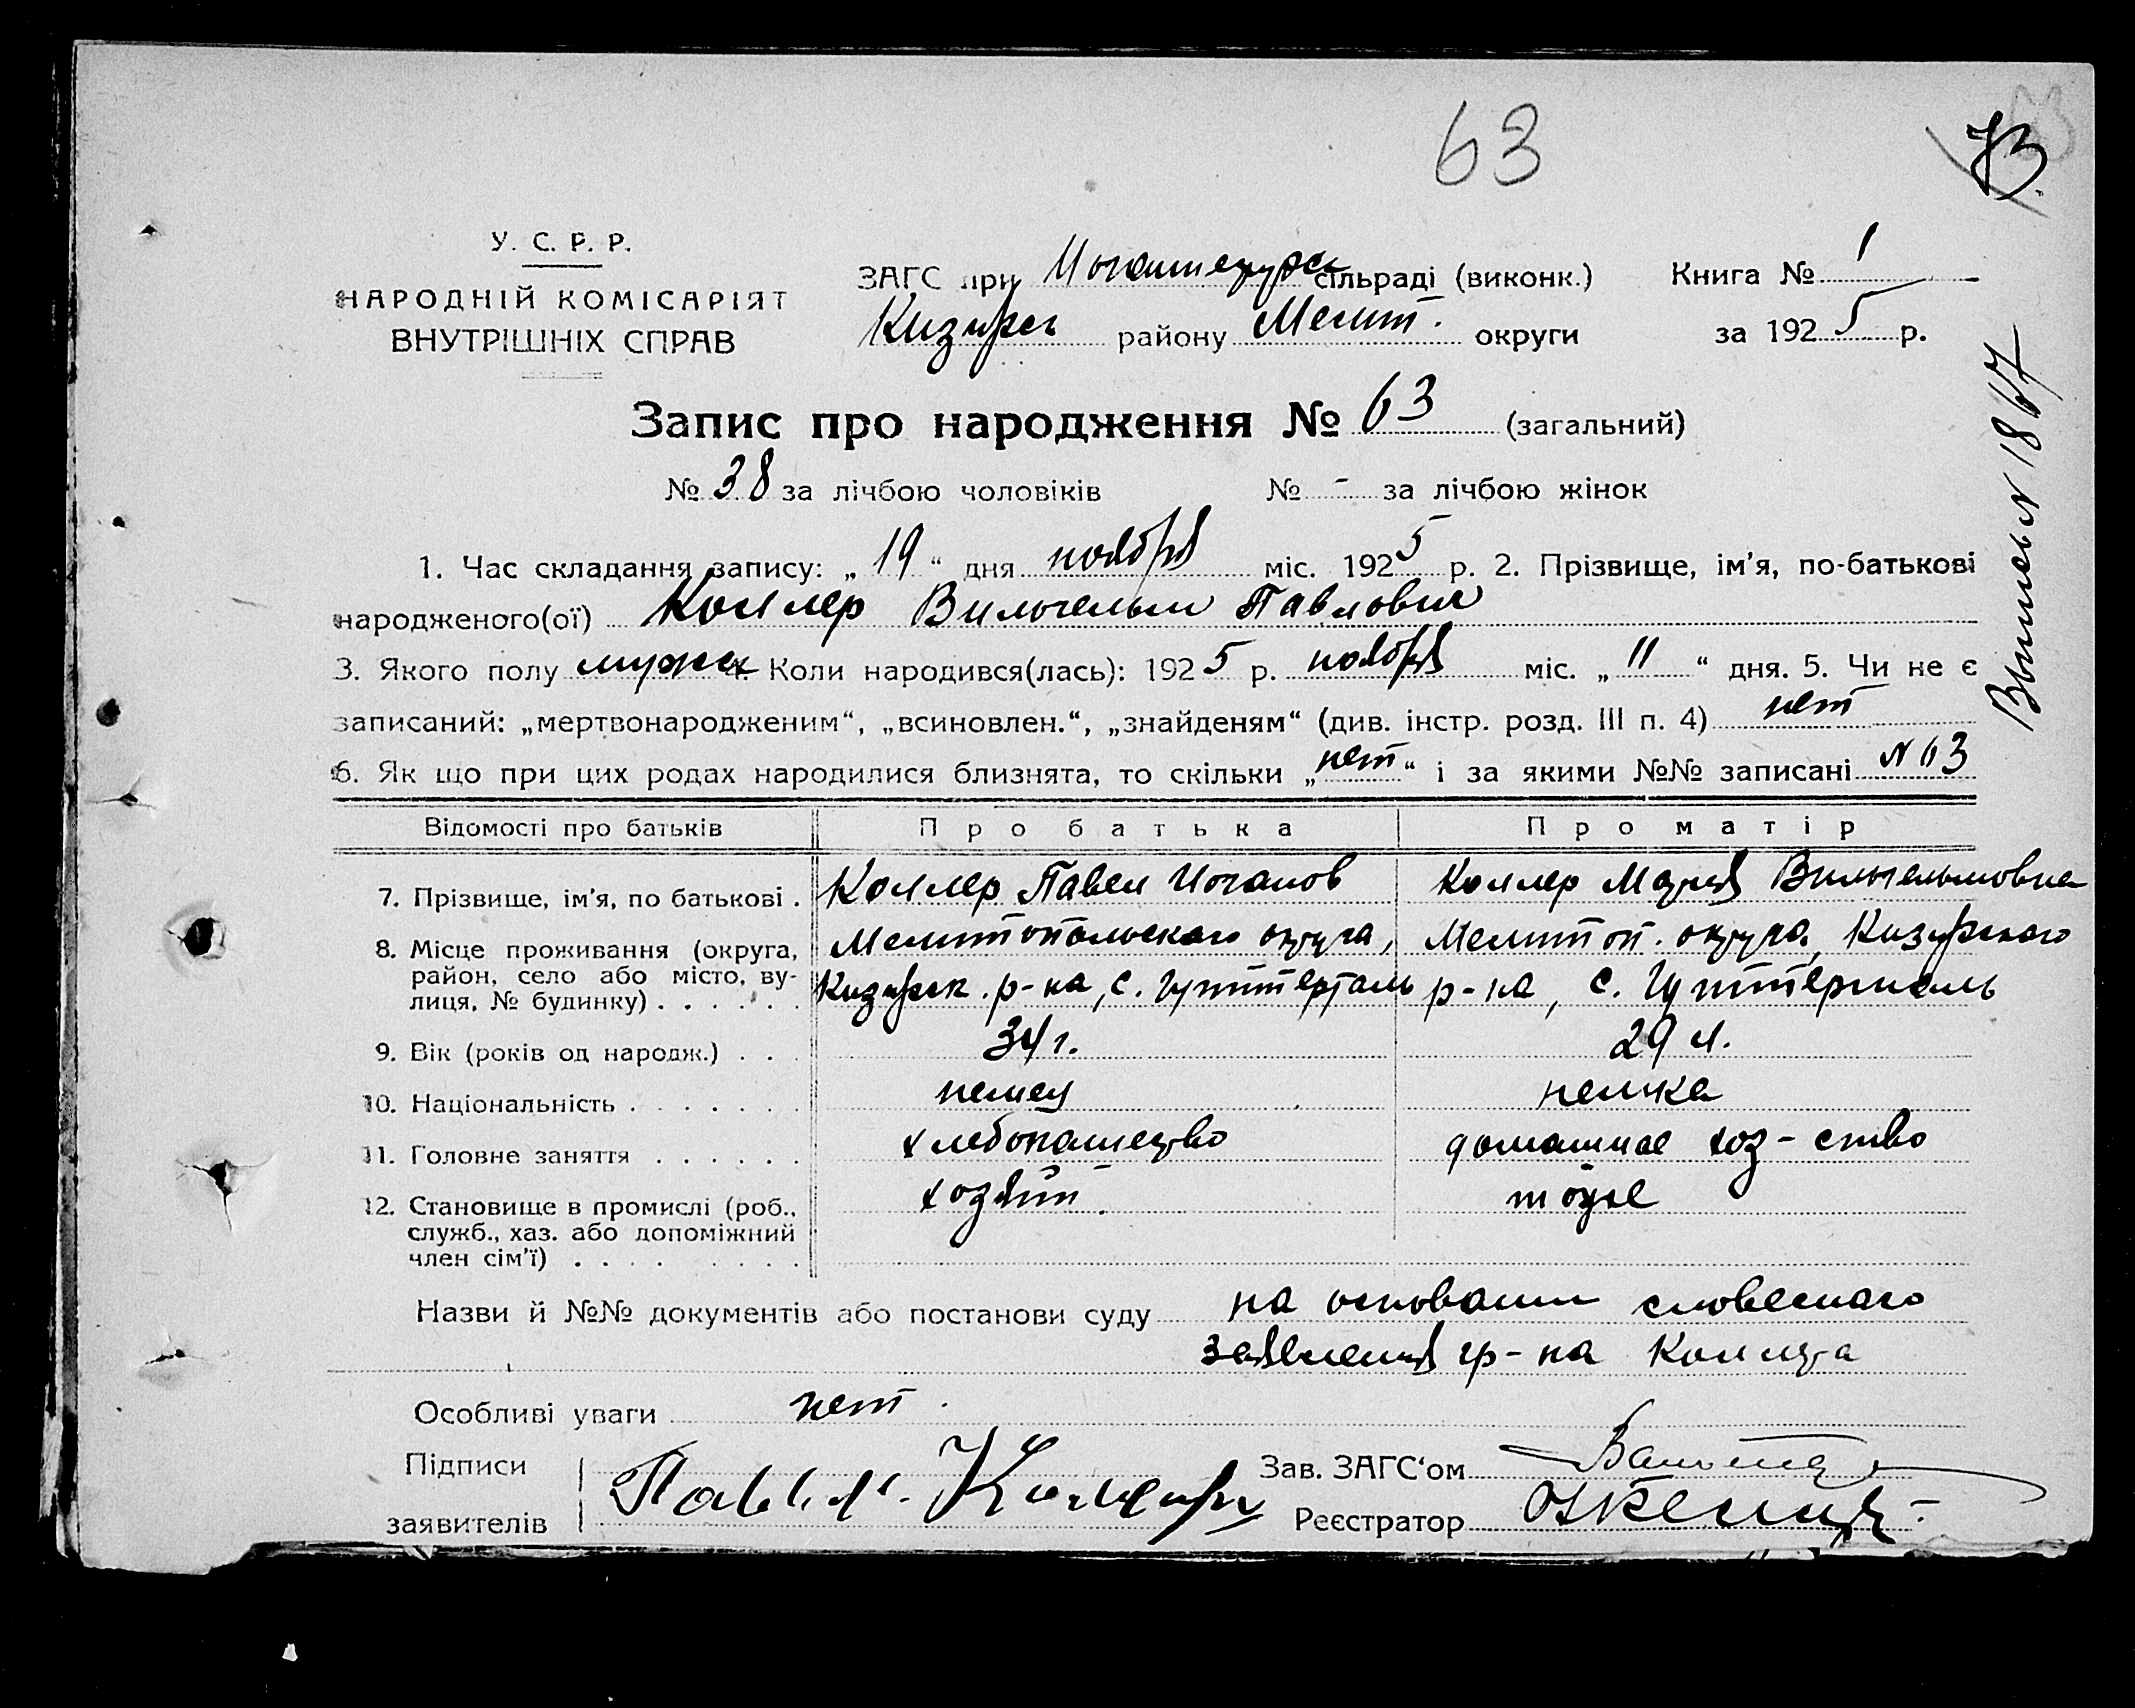 63
73
У. С. Р. Р.
НАРОДНІЙ КОМІСАРІЯТ
ВНУТРІШНІХ СПРАВ
ЗАГС при сільраді (виконк.) Книга № 1
района Мелит. округи за 1925 р.
Запис про народження № 63 (загальний)
№ 38 за лічбою чоловіків № - за лічбою жінок
1. Час складання запису: „19“ дня ноября міс. 1925 р. 2. Прізвище, ім’я, по-батькові
народженого(ої) Коллер Вильгельм Павлович
3. Якого полу мужск 4. Коли народився(лась): 1925 р. ноября міс. „11“ дня. 5. Чи не є
записаний: „мертвонародженим“, „всиновлен.“, „знайденям“ (див. інстр. розд. III п. 4) нет
6. Як що при цих родах народилися близнята, то скільки „нет“ і за якими №№ записані № 63
Відомості про батьків Про батька Про матір
7. Прізвище, ім’я, по батькові . Коллер Павел Иоганов Коллер Мария Вильгельмовна
8. Місце проживання (округа, Мелитопольского округа, Мелитоп. округа, Кизиярского
район, село або місто, ву- Кизиярск. р-на, с. Гуттерталь р-на, с. Гуттерталь
лиця, № будинку) . . . . . .
9. Вік (років од народж.) . . . 34 г. 29 л.
10. Національність . . . . . . . немец немка
11. Головне заняття . . . . . . хлебопашество домашнее хоз-ство
12. Становище в промислі (роб., хозяин. тоже
служб., хаз. або допоміжний
член сім’ї) . . . . . . . .
Назви й №№ документів або постанови суду на основании словесного
заявления гр-на Коллера
Особливі уваги нет.
Підписи
заявителів
Зав. ЗАГС‘ом
Реєстратор